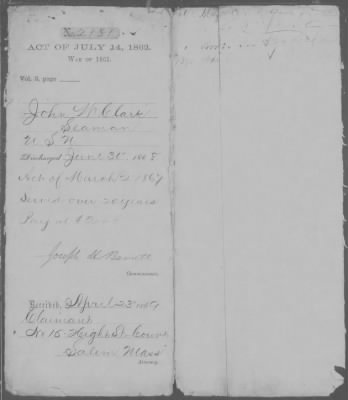 No. 2181
ACT OF JULY 14, 1862.
WAR OF 1861.
Vol. 3, page
John W. Clark
Seaman
U S N
Discharged June 30 1868
Act of March 2 1867
Served over 20 years
Pay at
Joseph H. Barrett
Commissioner.
Received, April 23 1869
Claimant
No 15 High St Court
Salem Mass
Attorney.